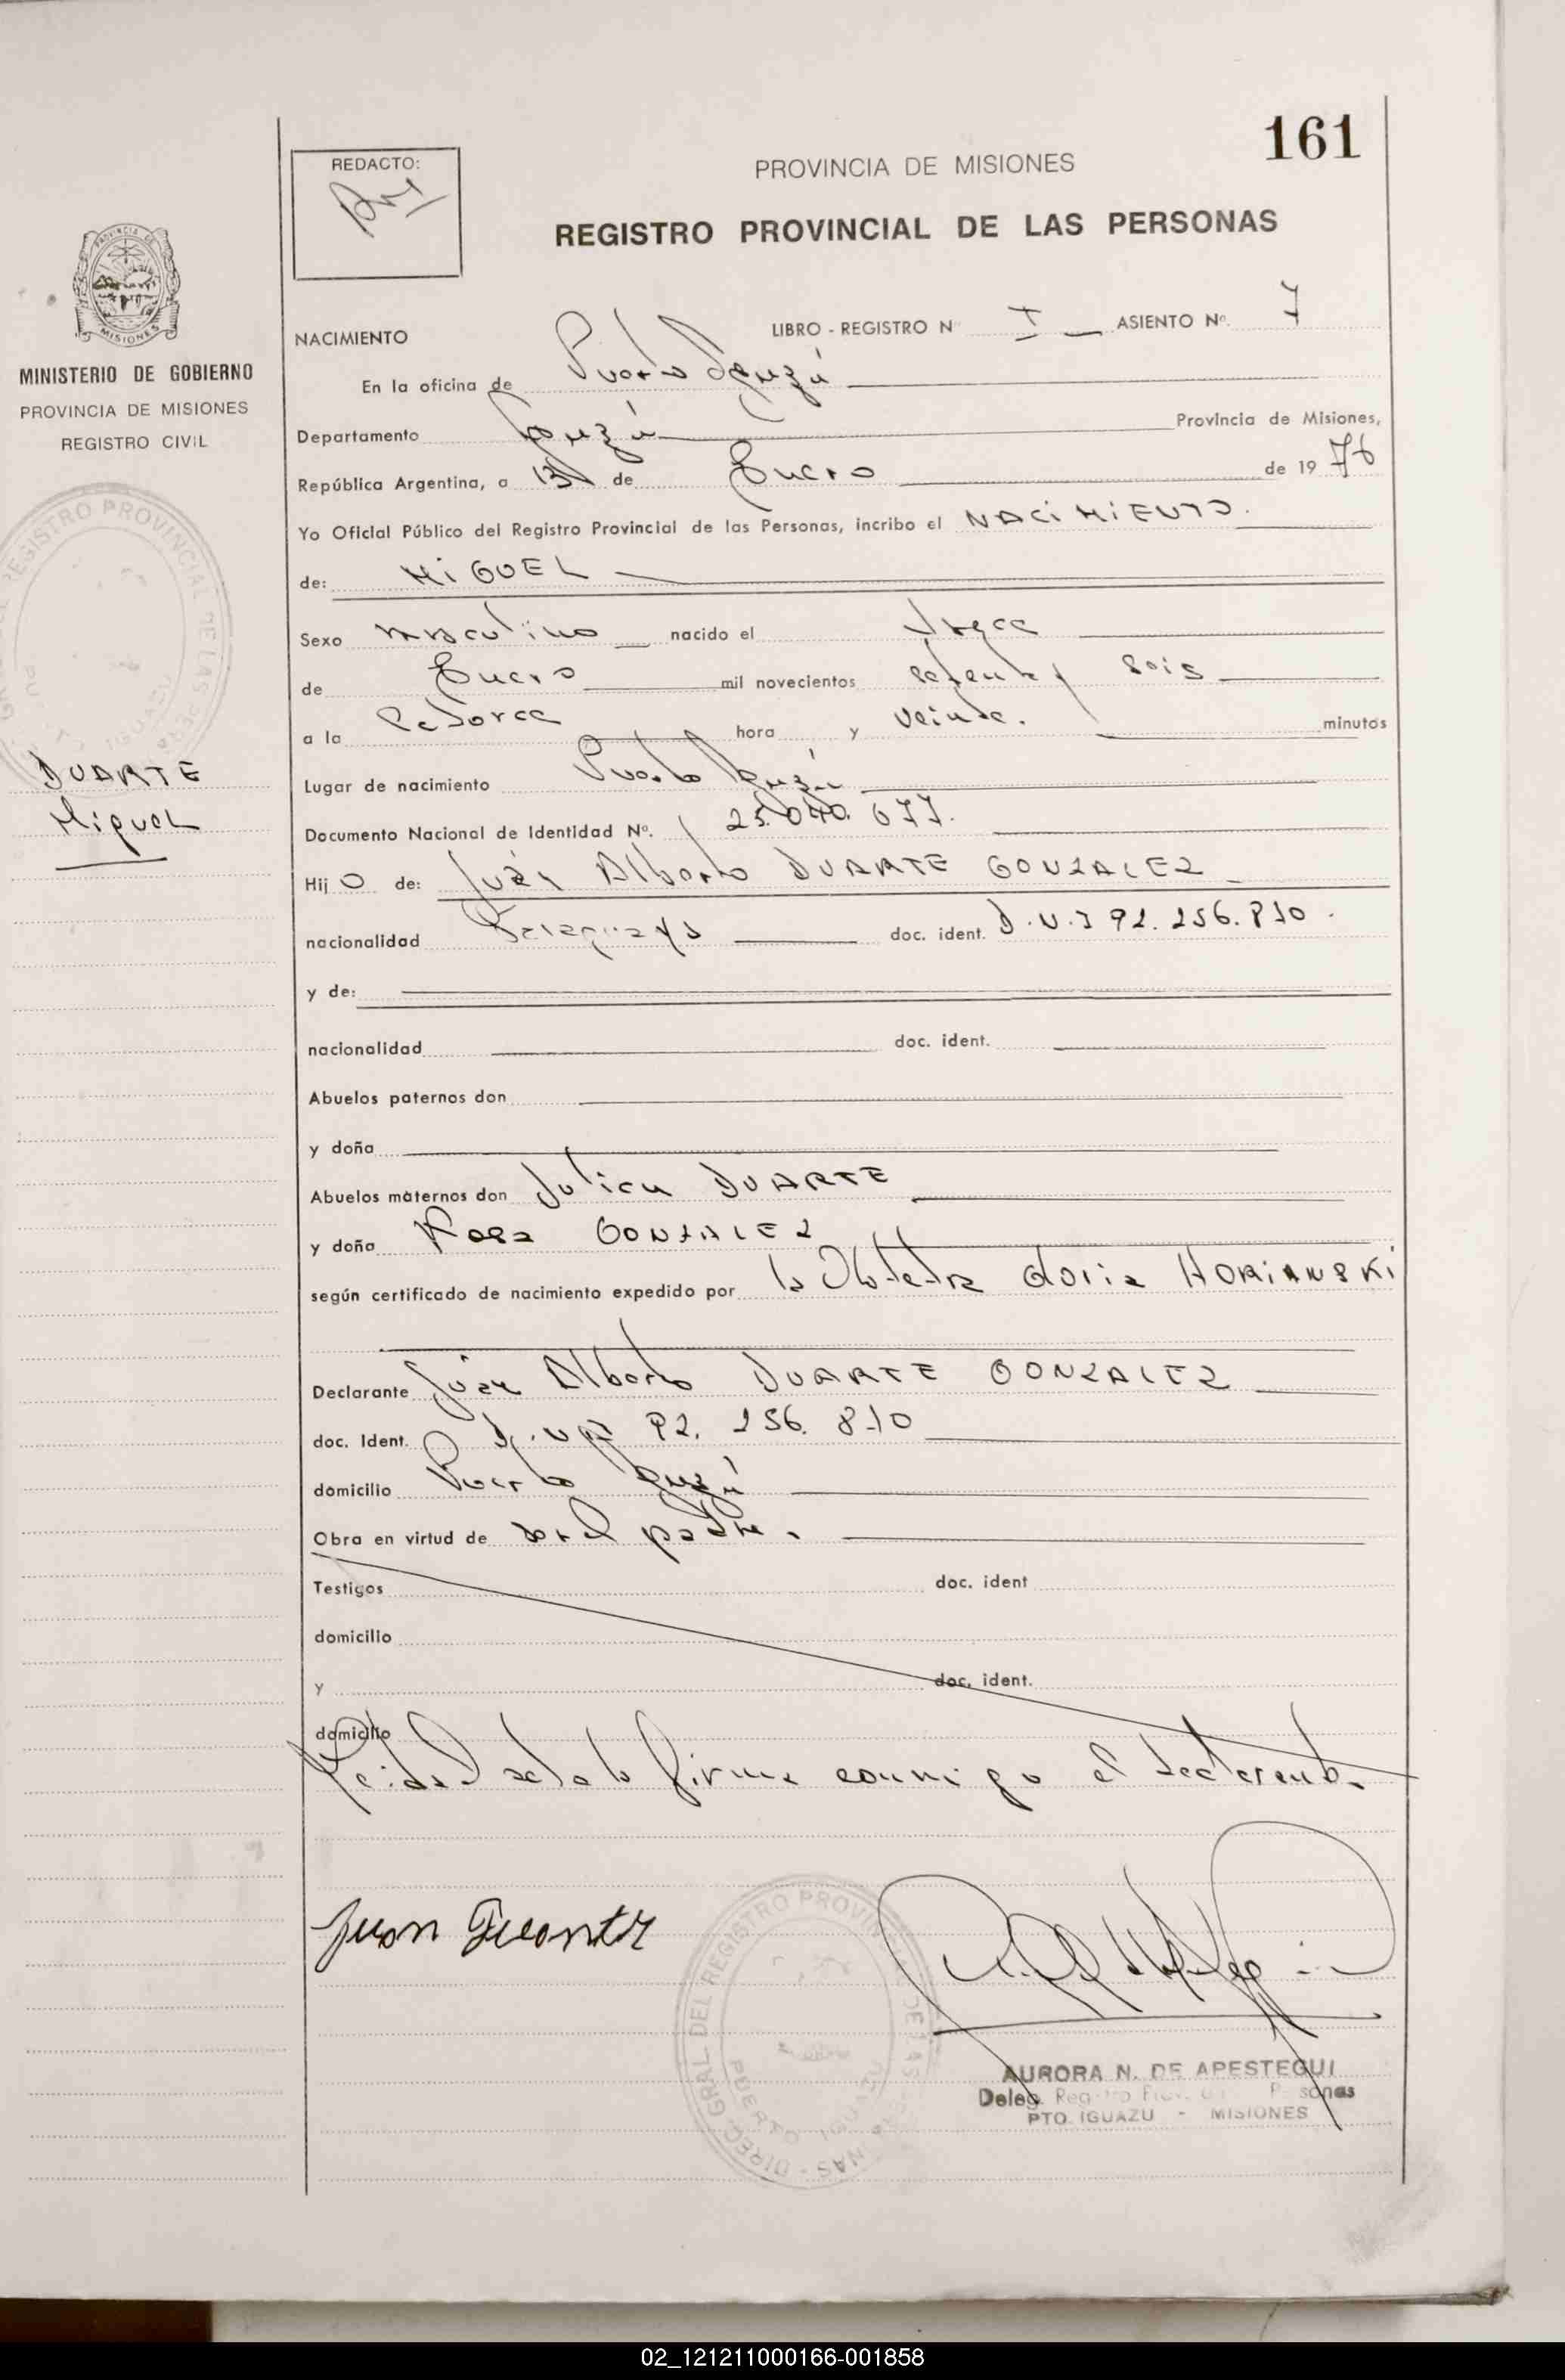 161
REDACTO:
PROVINCIA DE MISIONES
REGISTRO PROVINCIAL DE LAS PERSONAS
PROVINCIA DE
MISIONES
MINISTERIO DE GOBIERNO
PROVINCIA DE MISIONES
REGISTRO CIVIL
NACIMIENTO
LIBRO - REGISTRO N° I ASIENTO Nº. 7
En la oficina de Puerto Iguazú
Departamento Iguazú Provincia de Misiones,
República Argentina, a 13 de Enero de 1976
Yo Oficial Público del Registro Provincial de las Personas, incribo el NACIMIENTO.
de: MIGUEL
Sexo masculino nacido el trece
de Enero mil novecientos setenta y seis
a la catorce hora y veinte. minutos
DUARTE
Miguel
Lugar de nacimiento Puerto Iguazú
Documento Nacional de Identidad Nº. 25.040.677.
Hijo de: Juán Alberto DUARTE GONZALEZ
nacionalidad Paraguaya doc. ident. D.N.I 92.256.810.
y de:
nacionalidad doc. ident.
Abuelos paternos don
y doña
Abuelos maternos don Julian DUARTE
y doña Rosa GONZALEZ
según certificado de nacimiento expedido por la Obstetra Gloria HORIANSKI
Declarante Juán Alberto DUARTE GONZALEZ
doc. Ident. D.N.I 92.256.810
domicilio Puerto Iguazú
Obra en virtud de ser el padre.
Testigos doc. ident
domicilio
y doc. ident.
domicilio
Leida el acta la firma conmigo el declarante.
Juan
DIREC. GRAL. DEL REGISTRO PROVINCIAL DE LAS PERSONAS
PUERTO IGUAZU
AURORA N. DE APESTEGUI
Deleg. Registro Prov. de las Personas
PTO. IGUAZU - MISIONES
02_121211000166-001858